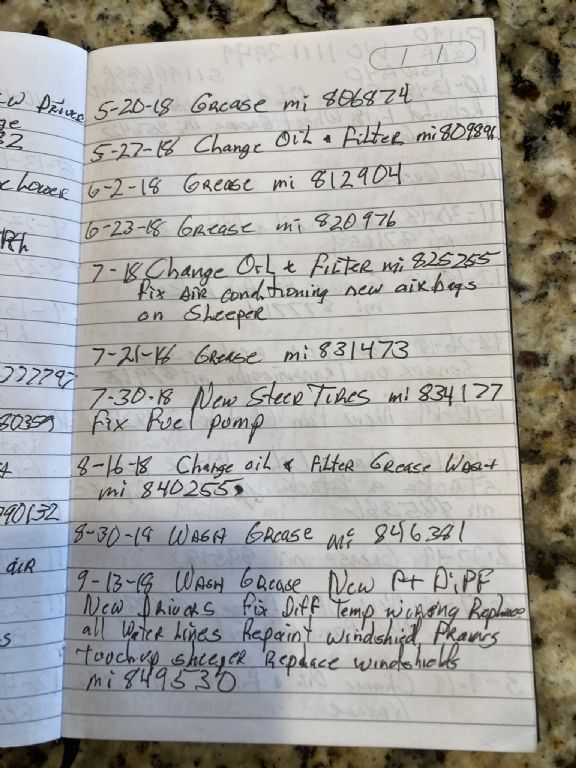 w Driver
ge
Lower
777797
80359
790132
air
5-20-18 Grease mi 806874
5-27-18 Change Oil & Filter mi 809896
6-2-18 Grease mi 812904
6-23-18 Grease mi 820976
7-18 Change Oil & Filter mi 825255
Fix Air conditioning new airbags
on Sleeper
7-21-18 Grease mi 831473
7-30-18 New Steer Tires mi 834177
Fix Fuel pump
8-16-18 Change oil & Filter Grease Wash
mi 840255
8-30-18 Wash Grease mi 846381
9-13-18 Wash Grease New Rt Diff
New Drivers Fix Diff Temp wiring Replace
all Water Lines Repaint windshied Frames
touchup sleeper Replace windshields
mi 849530